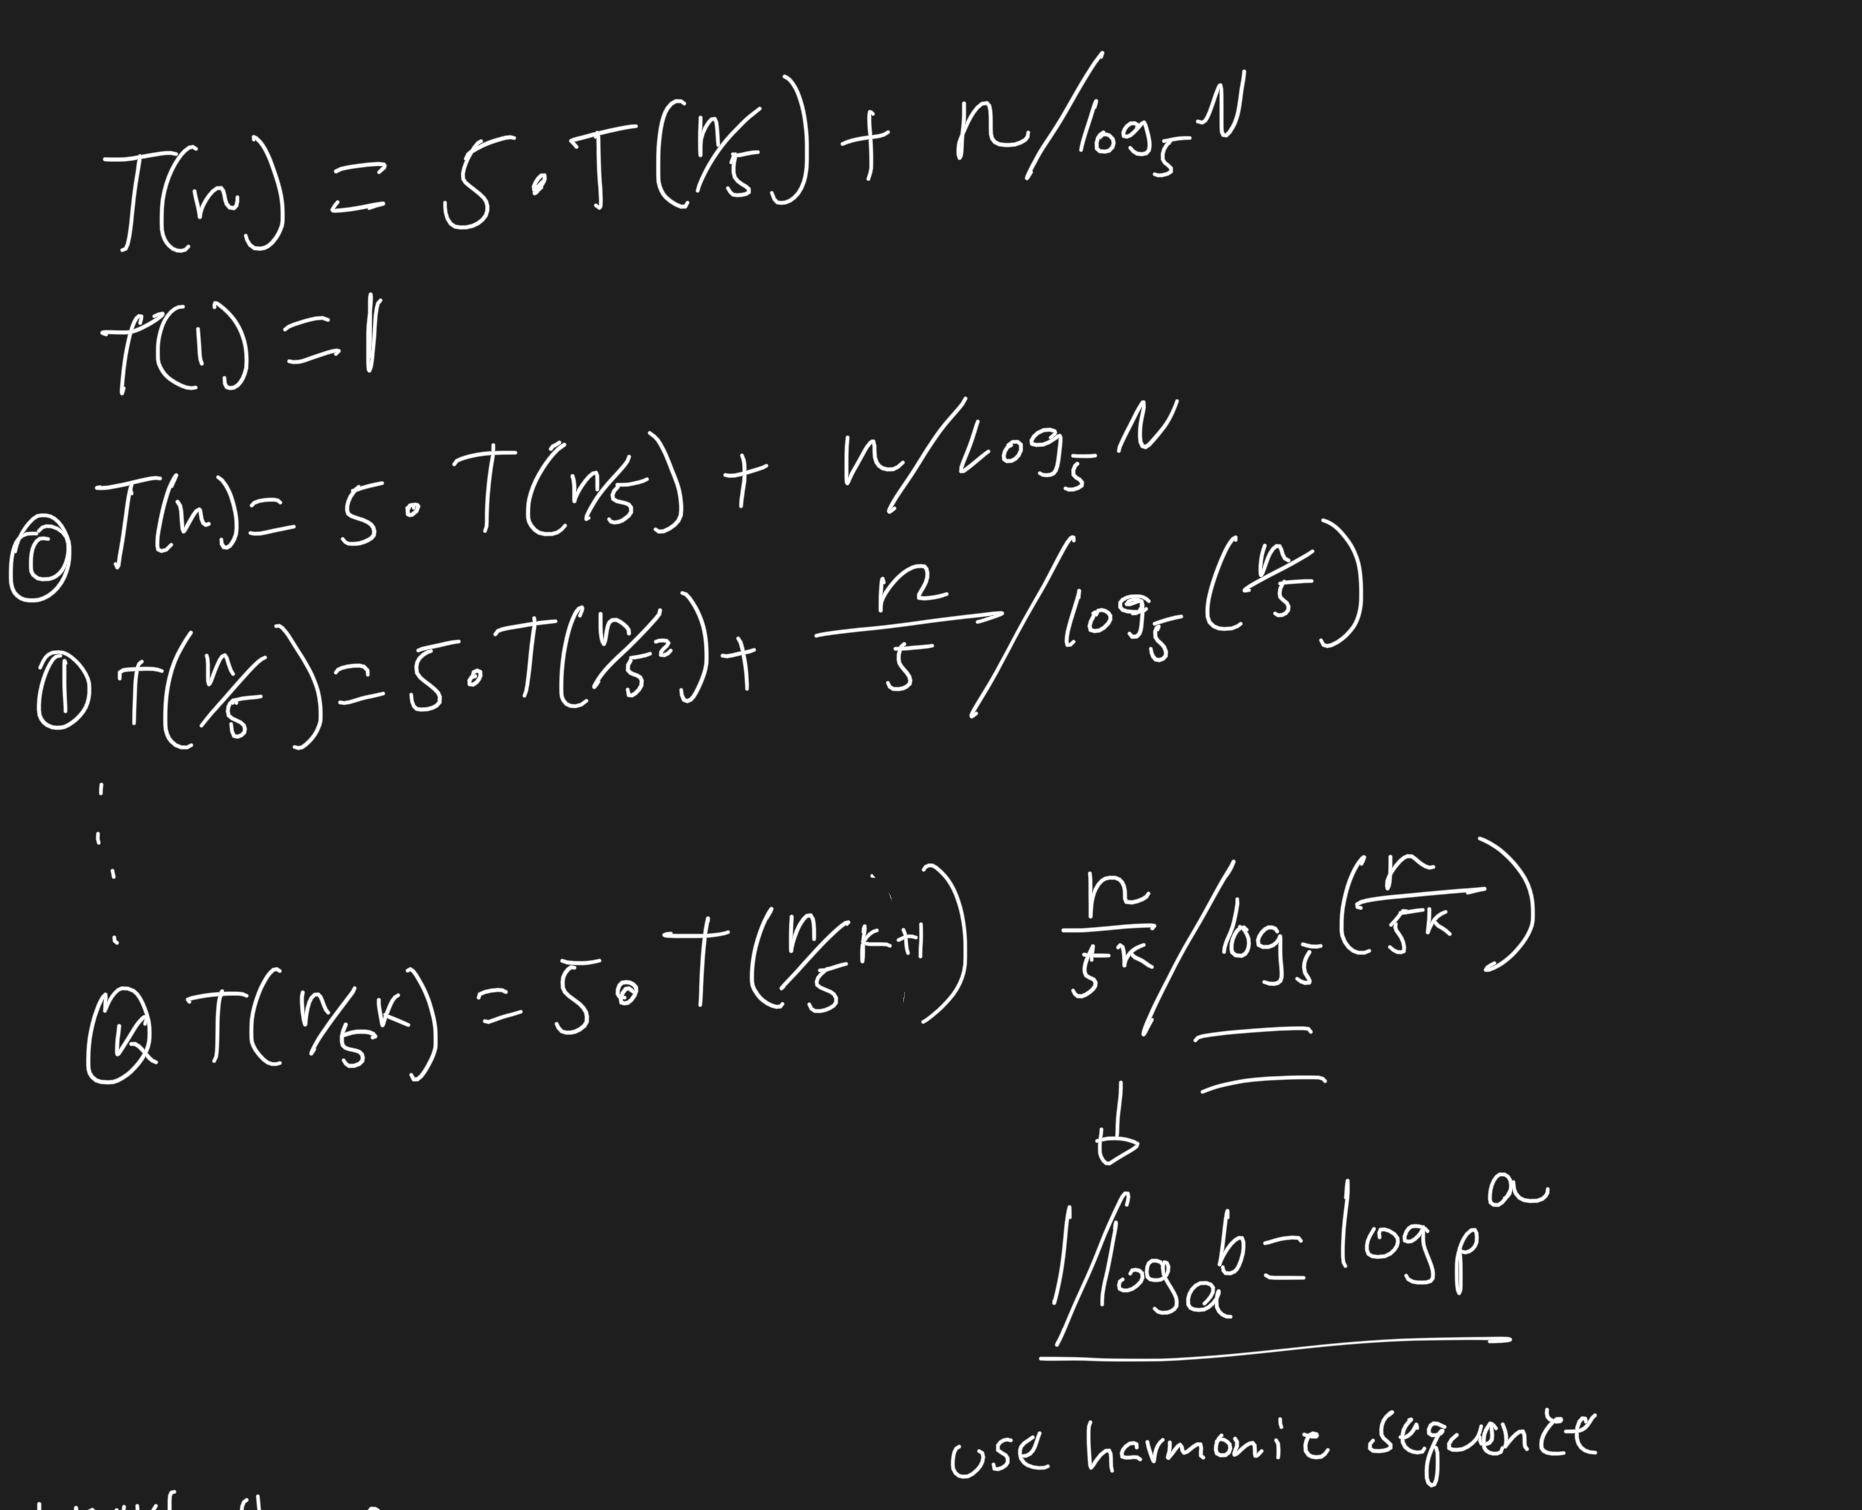 T(n) = 5 · T(n/5) + n/log₅N
T(1) = 1
⓪ T(n) = 5 · T(n/5) + n/log₅N
① T(n/5) = 5 · T(n/5²) + n/5 / log₅(n/5)
ⓚ T(n/5ᵏ) = 5 · T(n/5ᵏ⁺¹) n/5ᵏ / log₅(n/5ᵏ)
↓
1/logₐb = logₚa
use harmonic sequence